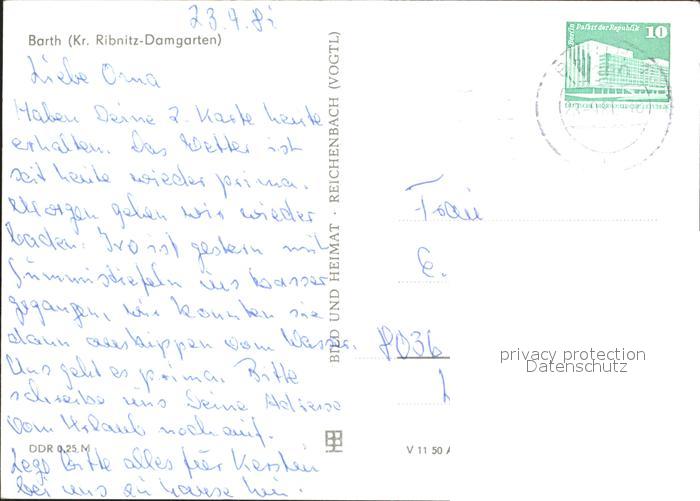 23.7.81
Barth (Kr. Ribnitz-Damgarten)
Liebe Oma
Haben Deine 2. Karte heute
erhalten. Das Wetter ist
seit heute wieder prima.
Morgen gehen wir wieder
baden. Ivo ist gestern mit
Gummistiefeln ins Wasser
gegangen, wir konnten sie
dann auskippen vom Wasser.
Uns geht es prima. Bitte
schreibe uns Deine Adresse
vom Urlaub noch auf.
Lege bitte alles für Kerstin
bei uns zu hause hin.
DDR 0,25 M
BILD UND HEIMAT · REICHENBACH (VOGTL)
V 11 50 A
Berlin Palast der Republik
10
Frau
E.
8036
privacy protection
Datenschutz